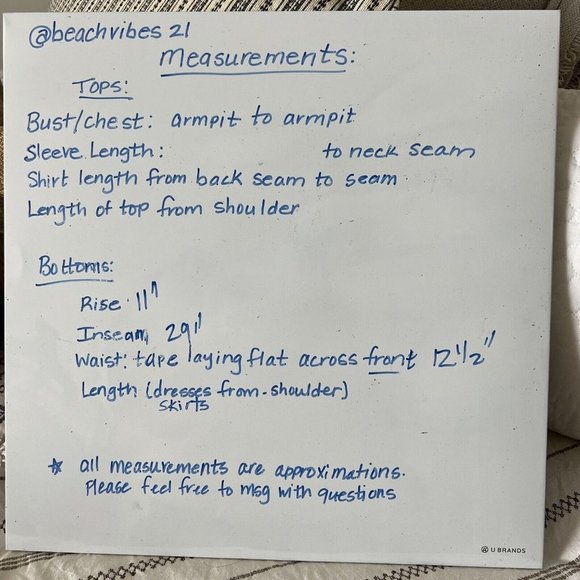 @beachvibes 21
Measurements:
TOPS:
Bust/chest: armpit to armpit
Sleeve Length: to neck seam
Shirt length from back seam to seam
Length of top from shoulder
Bottoms:
Rise 11"
Inseam 29"
Waist: tape laying flat across front 12 1/2"
Length (dresses from-shoulder)
skirts
☆ all measurements are approximations.
Please feel free to msg with questions
U BRANDS